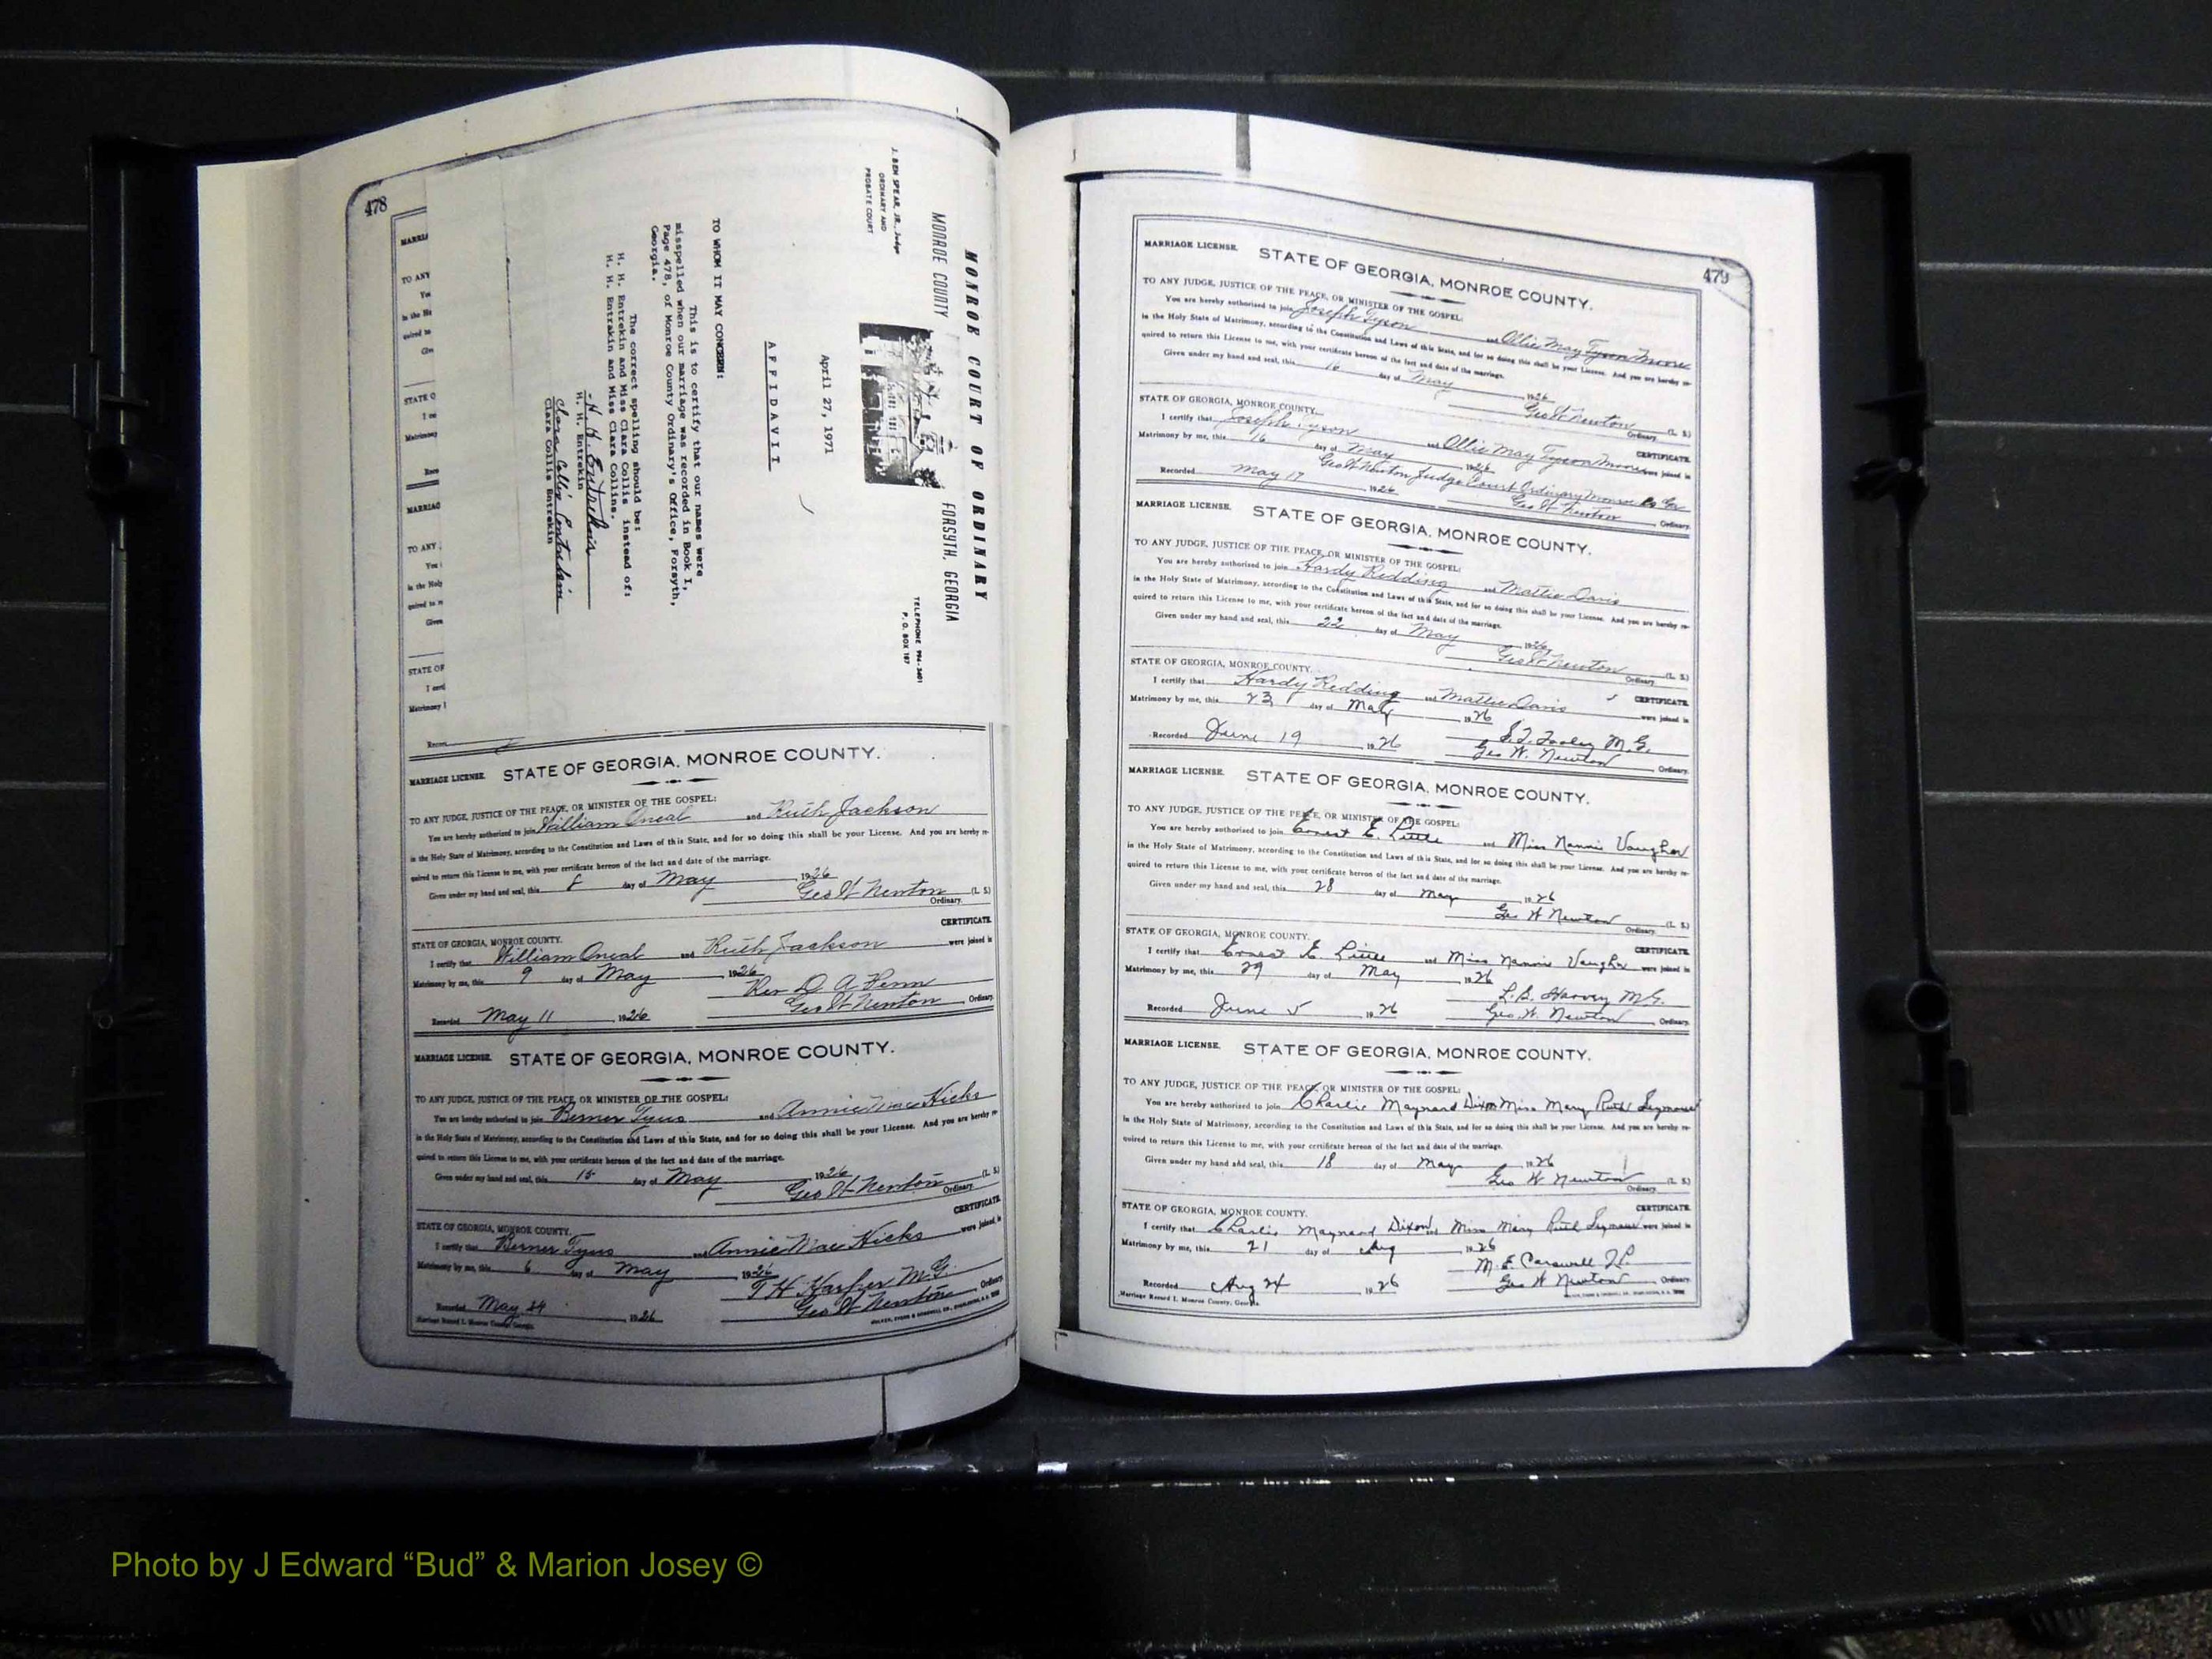 478
MONROE COURT OF ORDINARY
MONROE COUNTY
FORSYTH, GEORGIA
J. BEN SPEAR, JR., Judge
ORDINARY AND
PROBATE COURT
TELEPHONE 994-3601
P. O. BOX 187
April 27, 1971
A F F I D A V I T
TO WHOM IT MAY CONCERN:
This is to certify that our names were
misspelled when our marriage was recorded in Book I,
Page 478, of Monroe County Ordinary's Office, Forsyth,
Georgia.
The correct spelling should be:
H. H. Entrekin and Miss Clara Collis instead of:
H. H. Entrakin and Miss Clara Collins.
H. H. Entrekin
H. H. Entrekin
Clara Collis Entrekin
Clara Collis Entrekin
MARRIA
TO ANY
You
in the Ho
quired to
Give
STATE O
I ce
Matrimony
Reco
MARRIAG
TO ANY
You
in the Holy
quired to re
Given
STATE OF
I certi
Matrimony
Record
MARRIAGE LICENSE. STATE OF GEORGIA, MONROE COUNTY.
TO ANY JUDGE, JUSTICE OF THE PEACE, OR MINISTER OF THE GOSPEL:
You are hereby authorized to join William Oneal and Ruth Jackson
in the Holy State of Matrimony, according to the Constitution and Laws of this State, and for so doing this shall be your License. And you are hereby re-
quired to return this License to me, with your certificate hereon of the fact and date of the marriage.
Given under my hand and seal, this 8 day of May 1926
Geo W Newton (L. S.)
Ordinary.
CERTIFICATE.
STATE OF GEORGIA, MONROE COUNTY.
I certify that William Oneal and Ruth Jackson were joined in
Matrimony by me, this 9 day of May 1926
Rev D A Penn
Recorded May 11 1926 Geo W Newton Ordinary.
MARRIAGE LICENSE. STATE OF GEORGIA, MONROE COUNTY.
TO ANY JUDGE, JUSTICE OF THE PEACE, OR MINISTER OF THE GOSPEL:
You are hereby authorized to join Berner Tyus and Annie Mae Hicks
in the Holy State of Matrimony, according to the Constitution and Laws of this State, and for so doing this shall be your License. And you are hereby re-
quired to return this License to me, with your certificate hereon of the fact and date of the marriage.
Given under my hand and seal, this 15 day of May 1926
Geo W Newton (L. S.)
Ordinary.
CERTIFICATE.
STATE OF GEORGIA, MONROE COUNTY.
I certify that Berner Tyus and Annie Mae Hicks were joined in
Matrimony by me, this 6 day of May 1926
T H Harper M.G.
Recorded May 24 1926 Geo W Newton Ordinary.
Marriage Record I. Monroe County, Georgia.
479
MARRIAGE LICENSE. STATE OF GEORGIA, MONROE COUNTY.
TO ANY JUDGE, JUSTICE OF THE PEACE, OR MINISTER OF THE GOSPEL:
You are hereby authorized to join Joseph Tyson and Ollie May Tyson Moore
in the Holy State of Matrimony, according to the Constitution and Laws of this State, and for so doing this shall be your License. And you are hereby re-
quired to return this License to me, with your certificate hereon of the fact and date of the marriage.
Given under my hand and seal, this 16 day of May 1926
Geo W Newton (L. S.)
Ordinary.
CERTIFICATE.
STATE OF GEORGIA, MONROE COUNTY.
I certify that Joseph Tyson and Ollie May Tyson Moore were joined in
Matrimony by me, this 16 day of May 1926
Geo W Newton Judge Court Ordinary Monroe Co Ga
Recorded May 17 1926 Geo W Newton Ordinary.
MARRIAGE LICENSE. STATE OF GEORGIA, MONROE COUNTY.
TO ANY JUDGE, JUSTICE OF THE PEACE, OR MINISTER OF THE GOSPEL:
You are hereby authorized to join Hardy Redding and Mattie Davis
in the Holy State of Matrimony, according to the Constitution and Laws of this State, and for so doing this shall be your License. And you are hereby re-
quired to return this License to me, with your certificate hereon of the fact and date of the marriage.
Given under my hand and seal, this 22 day of May 1926
Geo W Newton (L. S.)
Ordinary.
STATE OF GEORGIA, MONROE COUNTY.
CERTIFICATE.
I certify that Hardy Redding and Mattie Davis were joined in
Matrimony by me, this 23 day of May 1926
M. G.
Recorded June 19 1926 Geo W. Newton Ordinary.
MARRIAGE LICENSE. STATE OF GEORGIA, MONROE COUNTY.
TO ANY JUDGE, JUSTICE OF THE PEACE, OR MINISTER OF THE GOSPEL:
You are hereby authorized to join Ernest E. Little and Miss Nannie Vaughn
in the Holy State of Matrimony, according to the Constitution and Laws of this State, and for so doing this shall be your License. And you are hereby re-
quired to return this License to me, with your certificate hereon of the fact and date of the marriage.
Given under my hand and seal, this 28 day of May 1926
Geo W Newton (L. S.)
Ordinary.
STATE OF GEORGIA, MONROE COUNTY.
CERTIFICATE.
I certify that Ernest E. Little and Miss Nannie Vaughn were joined in
Matrimony by me, this 29 day of May 1926
L. B. Harvey M.G.
Recorded June 5 1926 Geo. W. Newton Ordinary.
MARRIAGE LICENSE. STATE OF GEORGIA, MONROE COUNTY.
TO ANY JUDGE, JUSTICE OF THE PEACE, OR MINISTER OF THE GOSPEL:
You are hereby authorized to join Charlie Maynard Dixon Miss Mary Ruth Seymour
in the Holy State of Matrimony, according to the Constitution and Laws of this State, and for so doing this shall be your License. And you are hereby re-
quired to return this License to me, with your certificate hereon of the fact and date of the marriage.
Given under my hand and seal, this 18 day of May 1926
Geo W Newton (L. S.)
Ordinary.
STATE OF GEORGIA, MONROE COUNTY.
CERTIFICATE.
I certify that Charlie Maynard Dixon and Miss Mary Ruth Seymour were joined in
Matrimony by me, this 21 day of Aug 1926
M. E. Carswell J.P.
Recorded Aug 24 1926 Geo W Newton Ordinary.
Marriage Record I. Monroe County, Georgia.
Photo by J Edward “Bud” & Marion Josey ©